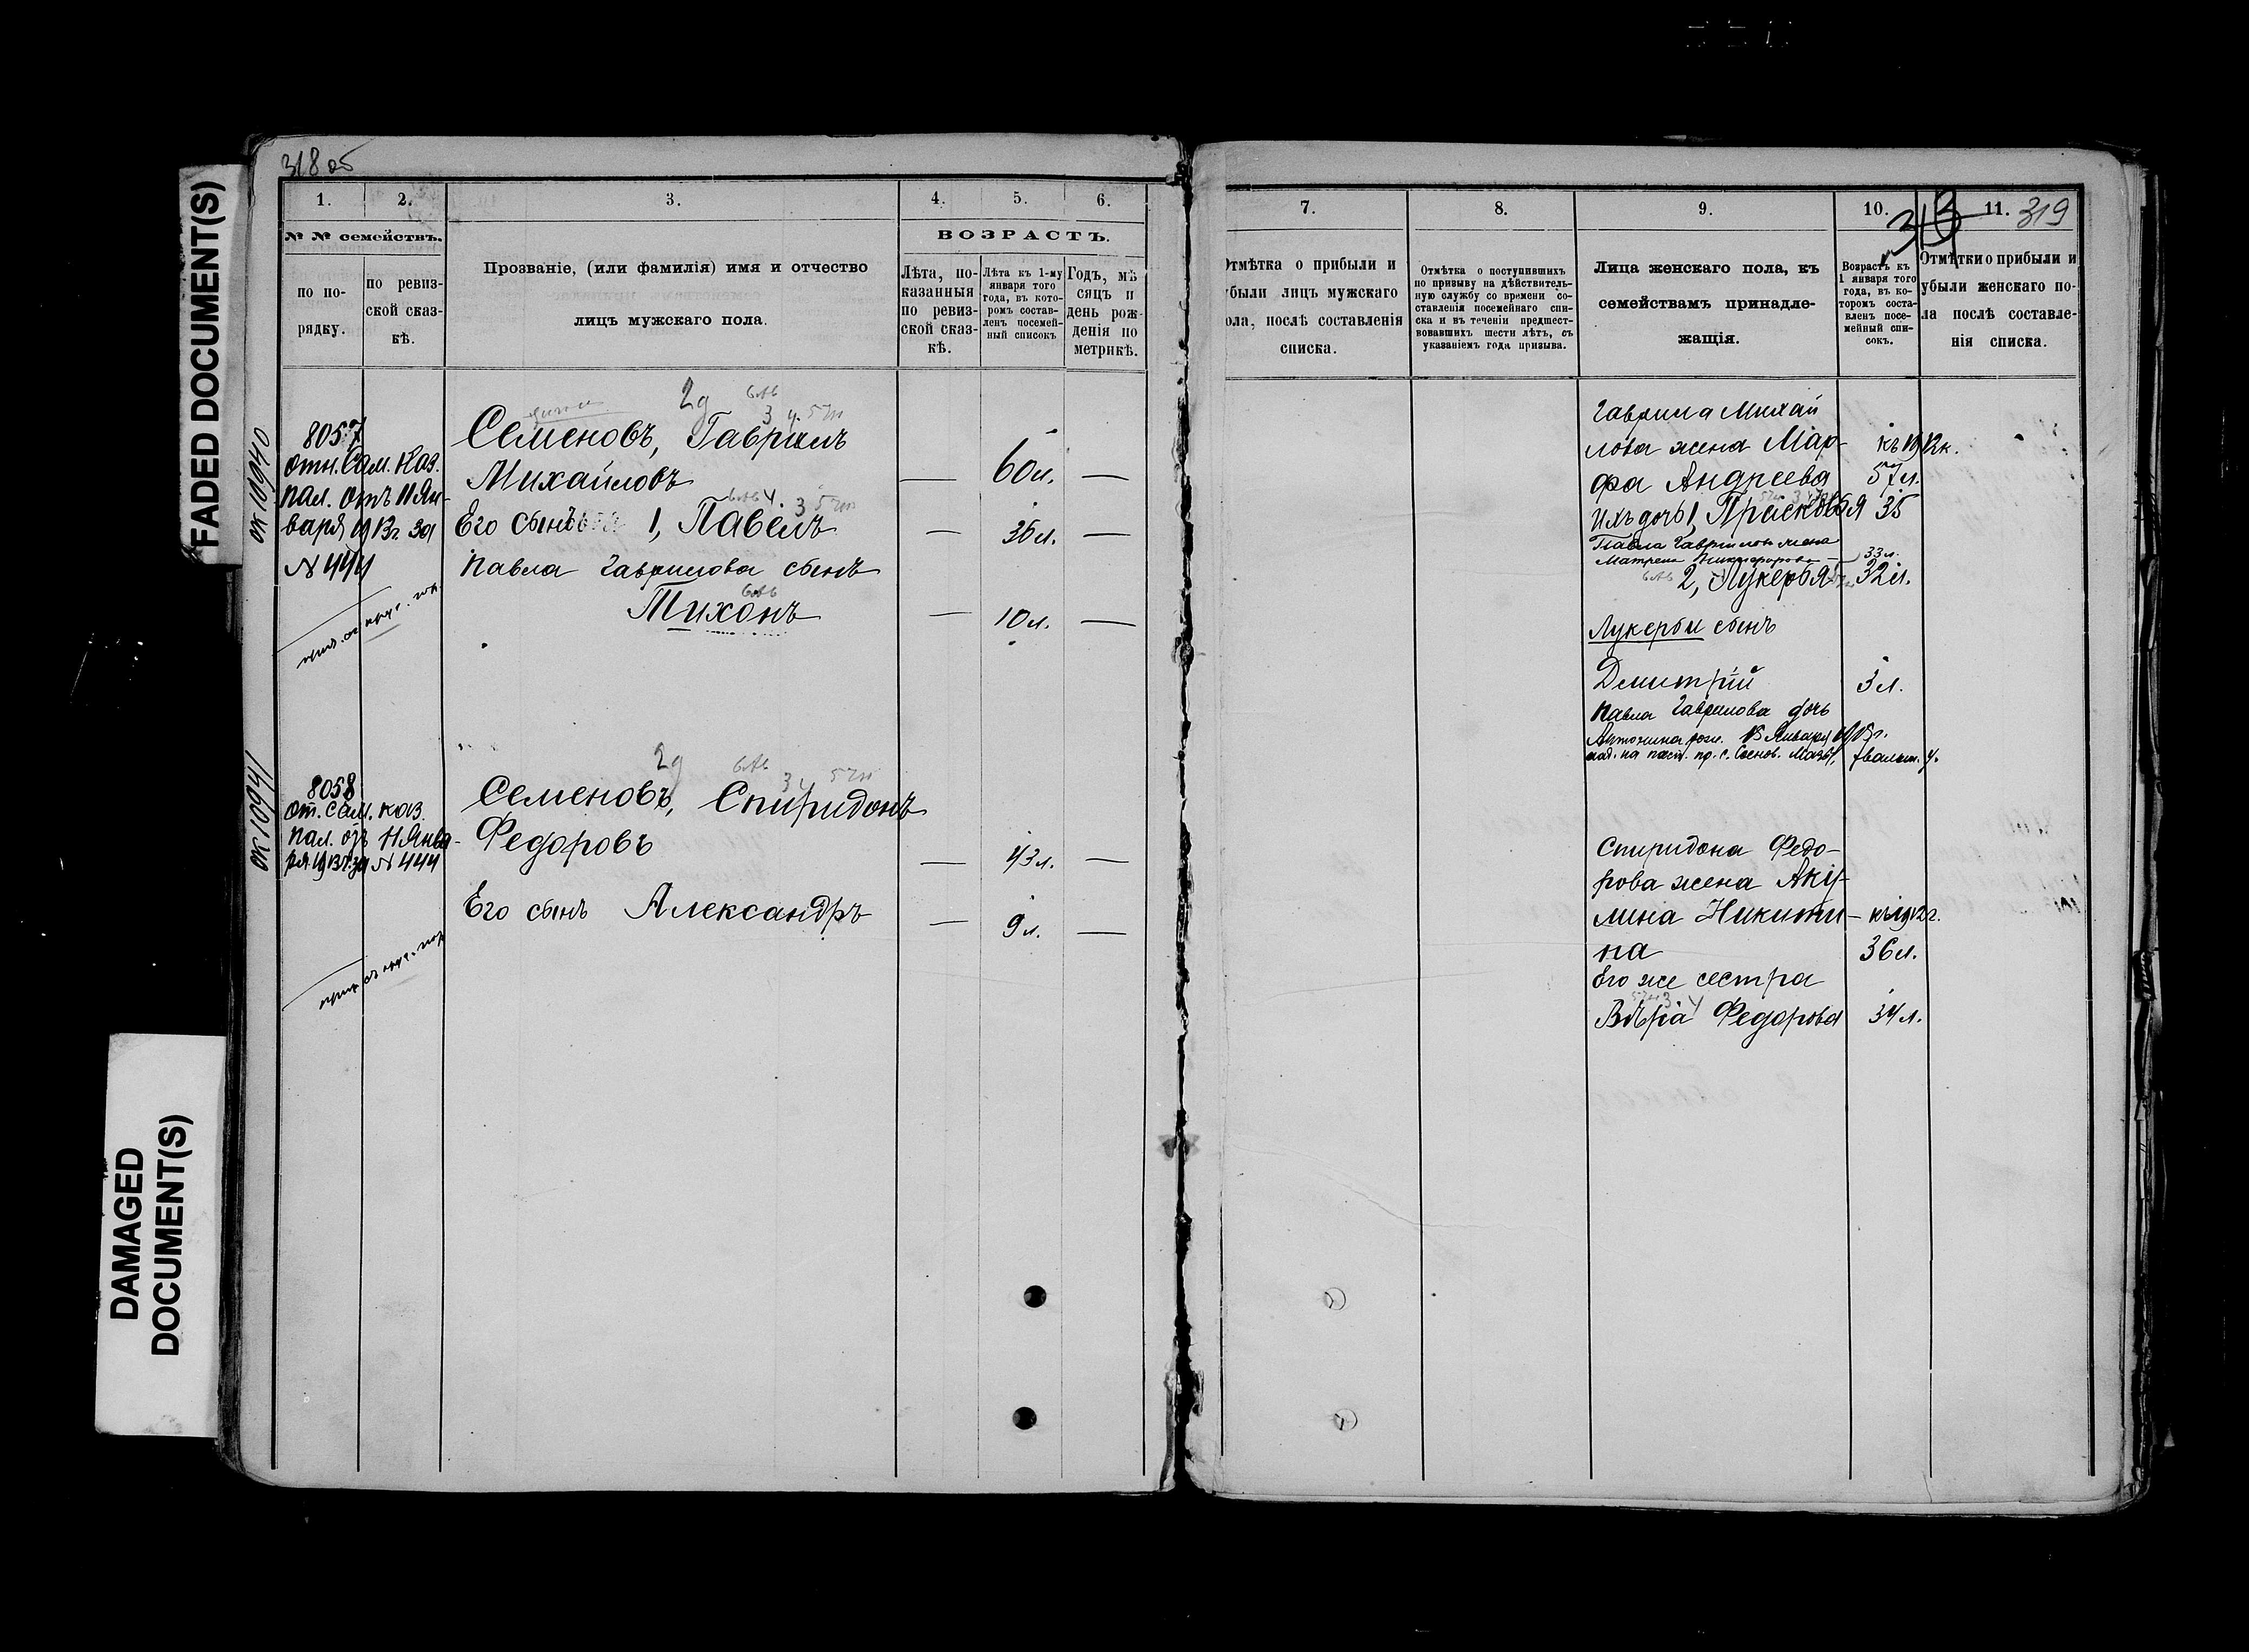 318 об
FADED DOCUMENT(S)
DAMAGED
DOCUMENT(S)
1.
2.
3.
4.
5.
6.
№ № семействъ.
по по-
рядку.
по ревиз-
ской сказ-
кѣ.
Прозваніе, (или фамилія) имя и отчество
лицъ мужскаго пола.
ВОЗРАСТЪ.
Лѣта, по-
казанныя
по ревиз-
ской сказ-
кѣ.
Лѣта къ 1-му
января того
года, въ кото-
ромъ состав-
ленъ посемей-
ный списокъ
Годъ, мѣ
сяцъ и
день рож-
денія по
метрикѣ.
ок 10940
8057
отн. Сам. Каз.
пал. отъ 11 Ян-
варя 1913г. за
№ 444
2g
3 4
Семеновъ, Гаврилъ
Михайловъ — 60л. —
Его сынъ 1, Павелъ — 36л. —
Павла Гаврилова сынъ
Тихонъ — 10л. —
ок 10941
8058
от. Сам. каз.
пал. отъ 11 Янва-
ря 1913г. за № 444
2g
3 4
Семеновъ, Спиридонъ
Федоровъ — 43л. —
Его сынъ Александръ — 9л. —
7.
8.
9.
10.
11.
319
Отмѣтка о прибыли и
убыли лицъ мужскаго
пола, послѣ составленія
списка.
Отмѣтка о поступившихъ
по призыву на дѣйствитель-
ную службу со времени со-
ставленія посемейнаго спи-
ска и въ теченіи предшест-
вовавшихъ шести лѣтъ, съ
указаніемъ года призыва.
Лица женскаго пола, къ
семействамъ принадле-
жащія.
Возрастъ къ
1 января того
года, въ ко-
торомъ соста-
вленъ посе-
мейный спи-
сокъ.
Отмѣтки о прибыли и
убыли женскаго по-
ла послѣ составле-
нія списка.
Гаврила Михай
лова жена Мар- къ 1912г.
фа Андреева 57л.
Ихъ дочь 1, Прасковья 35
Павла Гаврилов. жена
Матрена Никифорова — 33л.
2, Лукерья 32л.
Лукерьи сынъ
Дмитрій 3л.
Павла Гаврилова дочь
Антонина
Спиридона Федо-
рова жена Аку-
лина Никити- къ 1912г.
на 36л.
Его же сестра
Вѣра Федорова 34л.